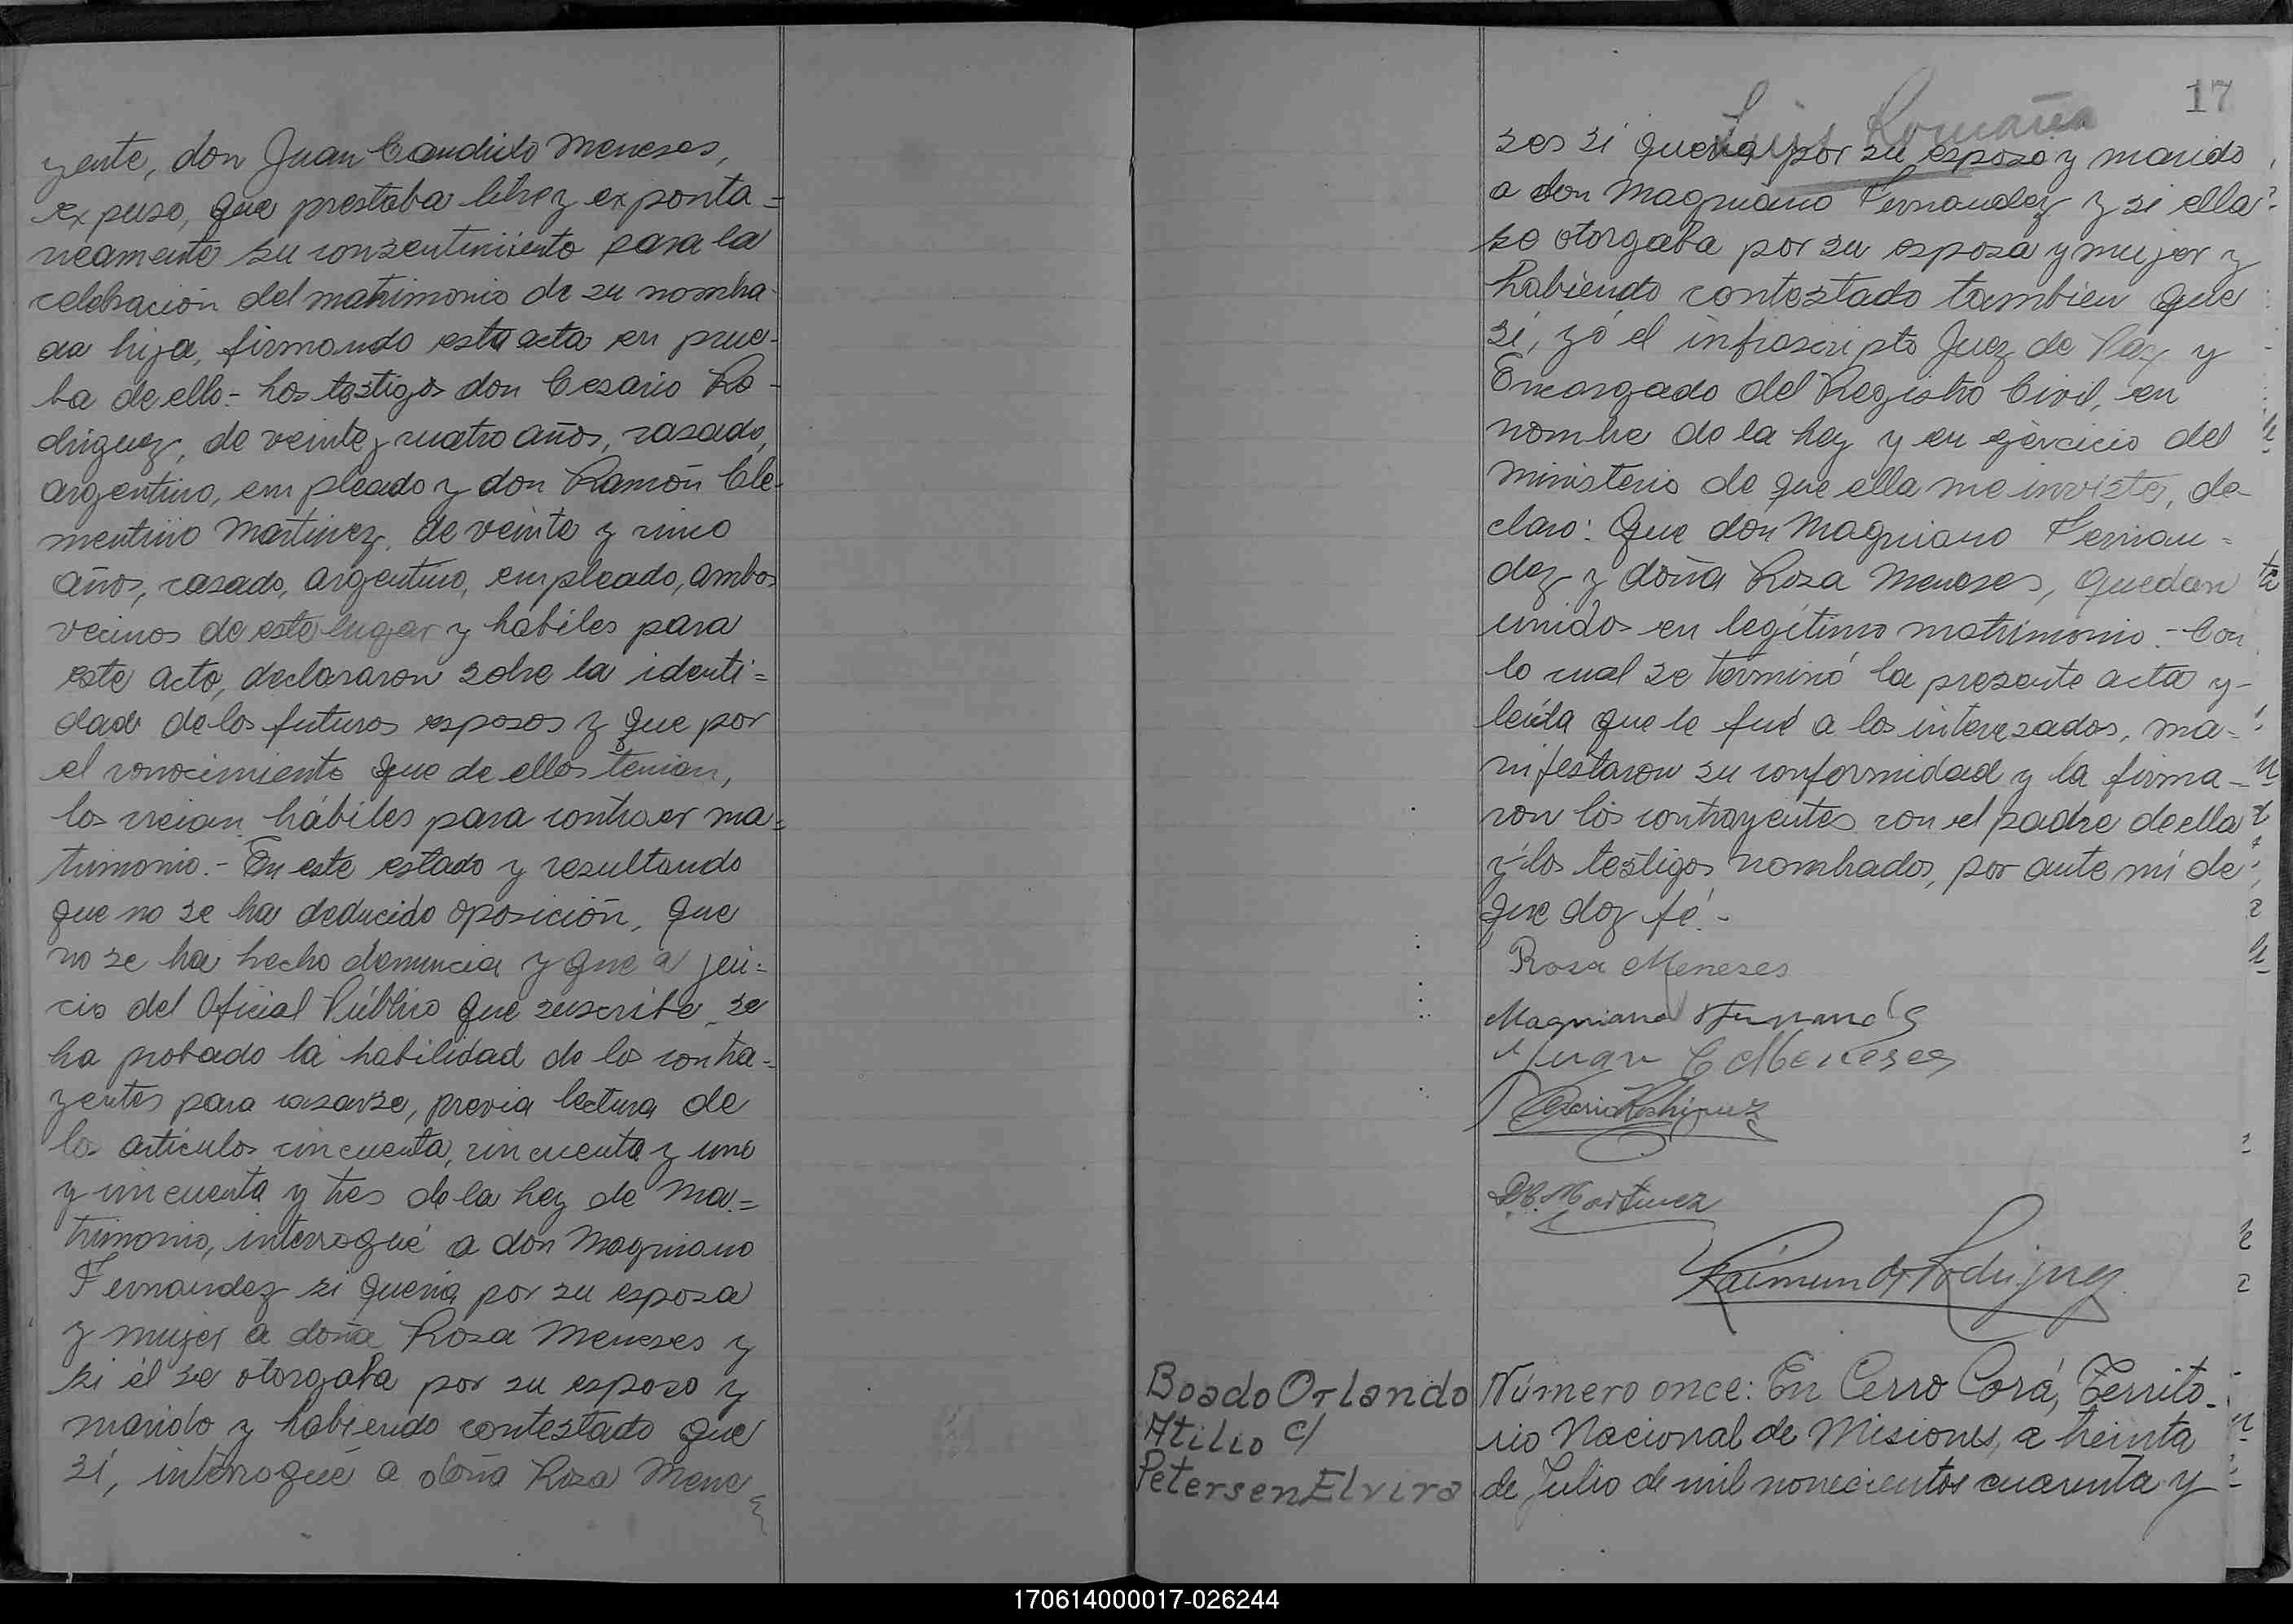 yente, don Juan Candido Meneses,
expuso, que prestaba libre y exponta=
neamente su consentimiento para la
celebración del matrimonio de su nombra-
da hija, firmando esta acta en prue-
ba de ello.- Los testigos don Cesario Ro-
driguez, de veinte y cuatro años, casado,
argentino, empleado y don Ramón Cle-
mentino Martinez, de veinte y cinco
años, casado, argentino, empleado, ambos
vecinos de este lugar y hábiles para
este acto, declararon sobre la identi=
dad de los futuros esposos y que por
el conocimiento que de ellos tenian,
los creian hábiles para contraer ma=
trimonio.- En este estado y resultando
que no se ha deducido oposición, que
no se ha hecho denuncia y que a jui=
cio del Oficial Público que suscribe se
ha probado la habilidad de los contra=
yentes para casarse, previa lectura de
los artículos cincuenta, cincuenta y uno
y cincuenta y tres de la Ley de Ma=
trimonio, interrogué a don Magniano
Fernandez si queria por su esposa
y mujer a doña Rosa Meneses y
si él se otorgaba por su esposo y
marido y habiendo contestado que
sí, interrogué a doña Rosa Mene
17
Luis Romaña
ses si queria por su esposo y marido
a don Magniano Fernandez y si ella
se otorgaba por su esposa y mujer y
habiendo contestado tambien que
sí, yó el infrascripto Juez de Paz y
Encargado del Registro Civil, en
nombre de la Ley y en ejercicio del
ministerio de que ella me inviste, de-
claro: Que don Magniano Fernan=
dez y doña Rosa Meneses, quedan
unidos en legítimo matrimonio.- Con
lo cual se terminó la presente acta y-
leída que le fué a los interesados, ma-
nifestaron su conformidad y la firma-
ron los contrayentes con el padre de ella
y los testigos nombrados, por ante mí de
que doy fé.-
Rosa Meneses
Magniano Fernandez
Juan C Meneses
Cesario Rodriguez
Martinez
Raimundo Rodriguez
Boado Orlando
Atilio c/
Petersen Elvira
Número once: En Cerro Corá, Territo-
rio Nacional de Misiones, a treinta
de Julio de mil novecientos cuarenta y
170614000017-026244